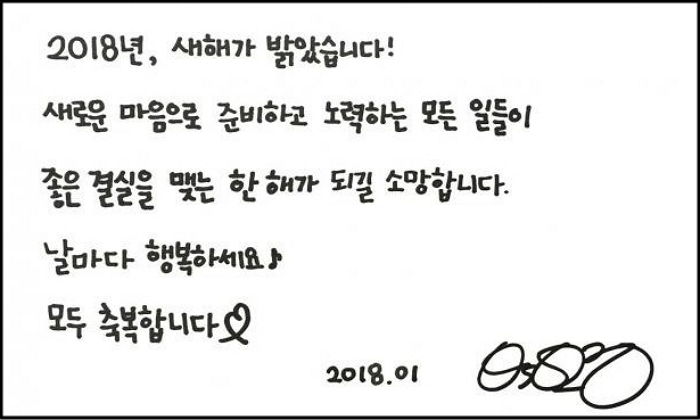 2018년, 새해가 밝았습니다!
새로운 마음으로 준비하고 노력하는 모든 일들이
좋은 결실을 맺는 한 해가 되길 소망합니다.
날마다 행복하세요♪
모두 축복합니다♡
2018.01